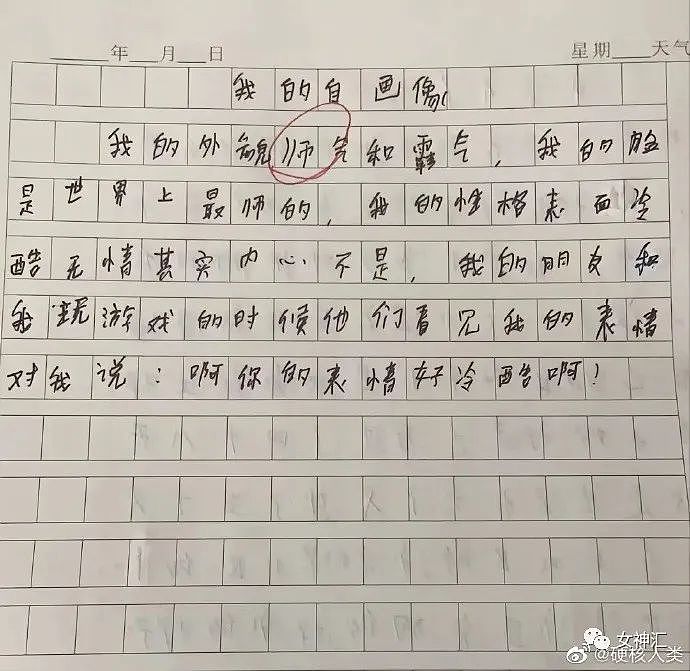 年 月 日 星期 天气
我的自画像
我的外貌师气和霸气，我的脸
是世界上最师的，我的性格表面冷
酷无情其实内心不是，我的朋友和
我玩游戏的时候他们看见我的表情
对我说：啊你的表情好冷酷啊！
女神汇
@硬核人类